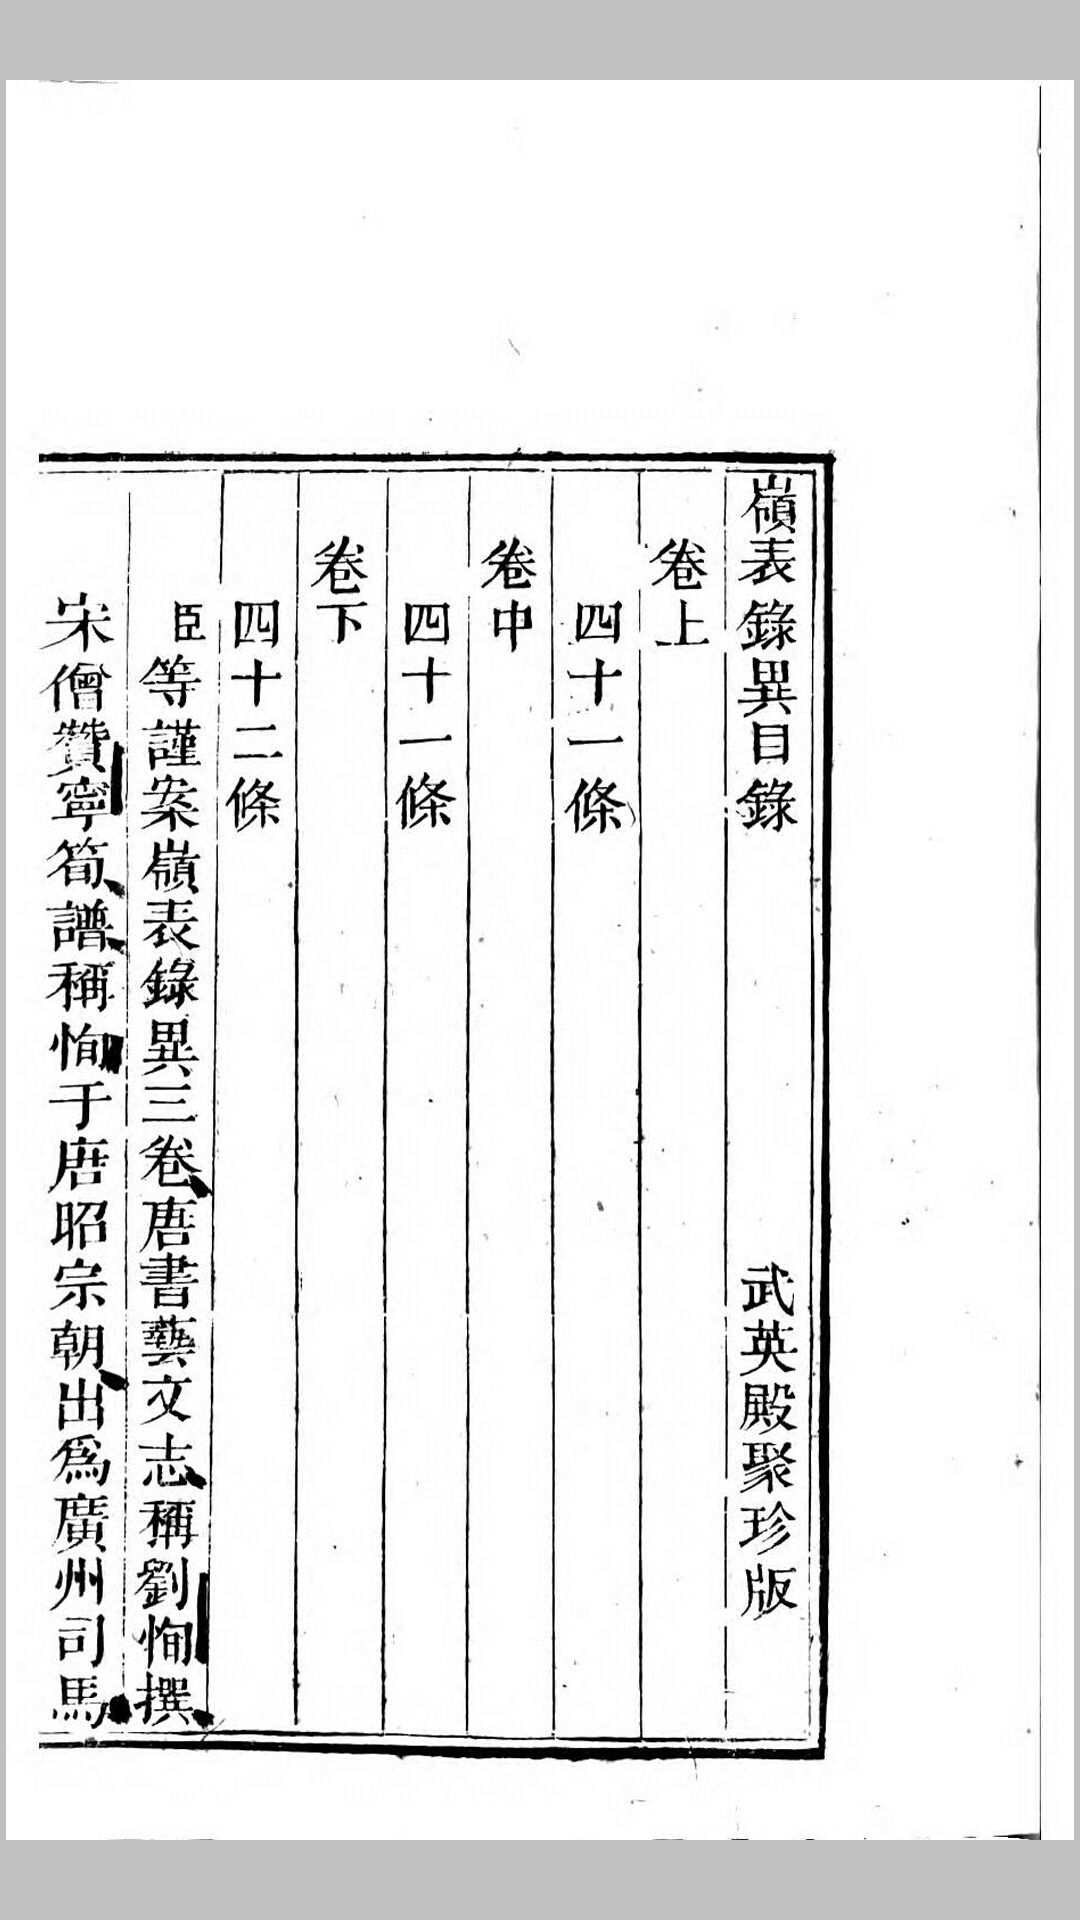 嶺表錄異目錄 武英殿聚珍版
卷上
四十一條
卷中
四十一條
卷下
四十二條
臣等謹案嶺表錄異三卷唐書藝文志稱劉恂撰
宋僧贊寧筍譜稱恂于唐昭宗朝出爲廣州司馬